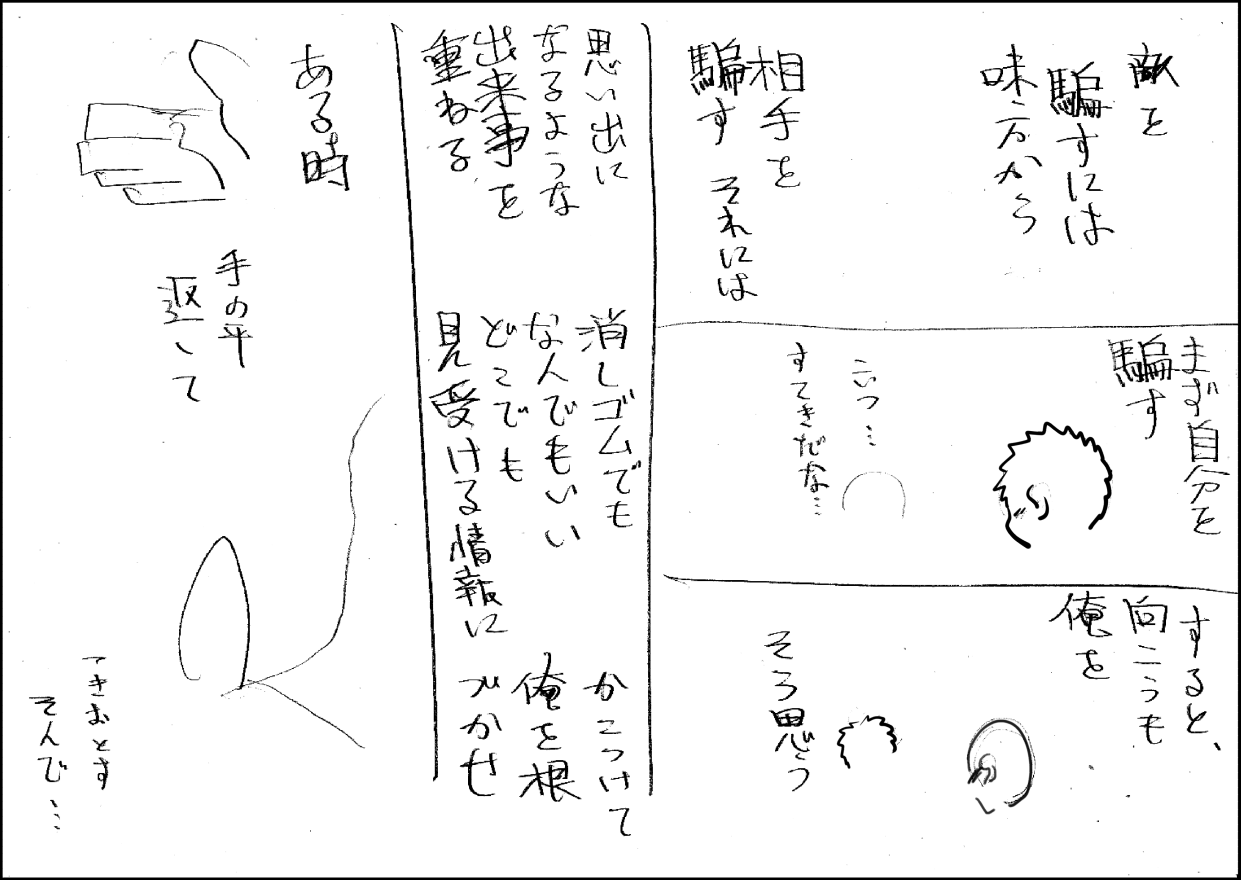 敵を
騙すには
味方から
相手を
騙す それには
まず自分を
騙す
こいつ…
すてきだな…
すると、
向こうも
俺を
そう思う
思い出に
なるような
出来事を
重ねる
消しゴムでも
なんでもいい
どこでも
見受ける情報に
かこつけて
俺を根
づかせ
ある時
手の平
返して
つきおとす
そんで…